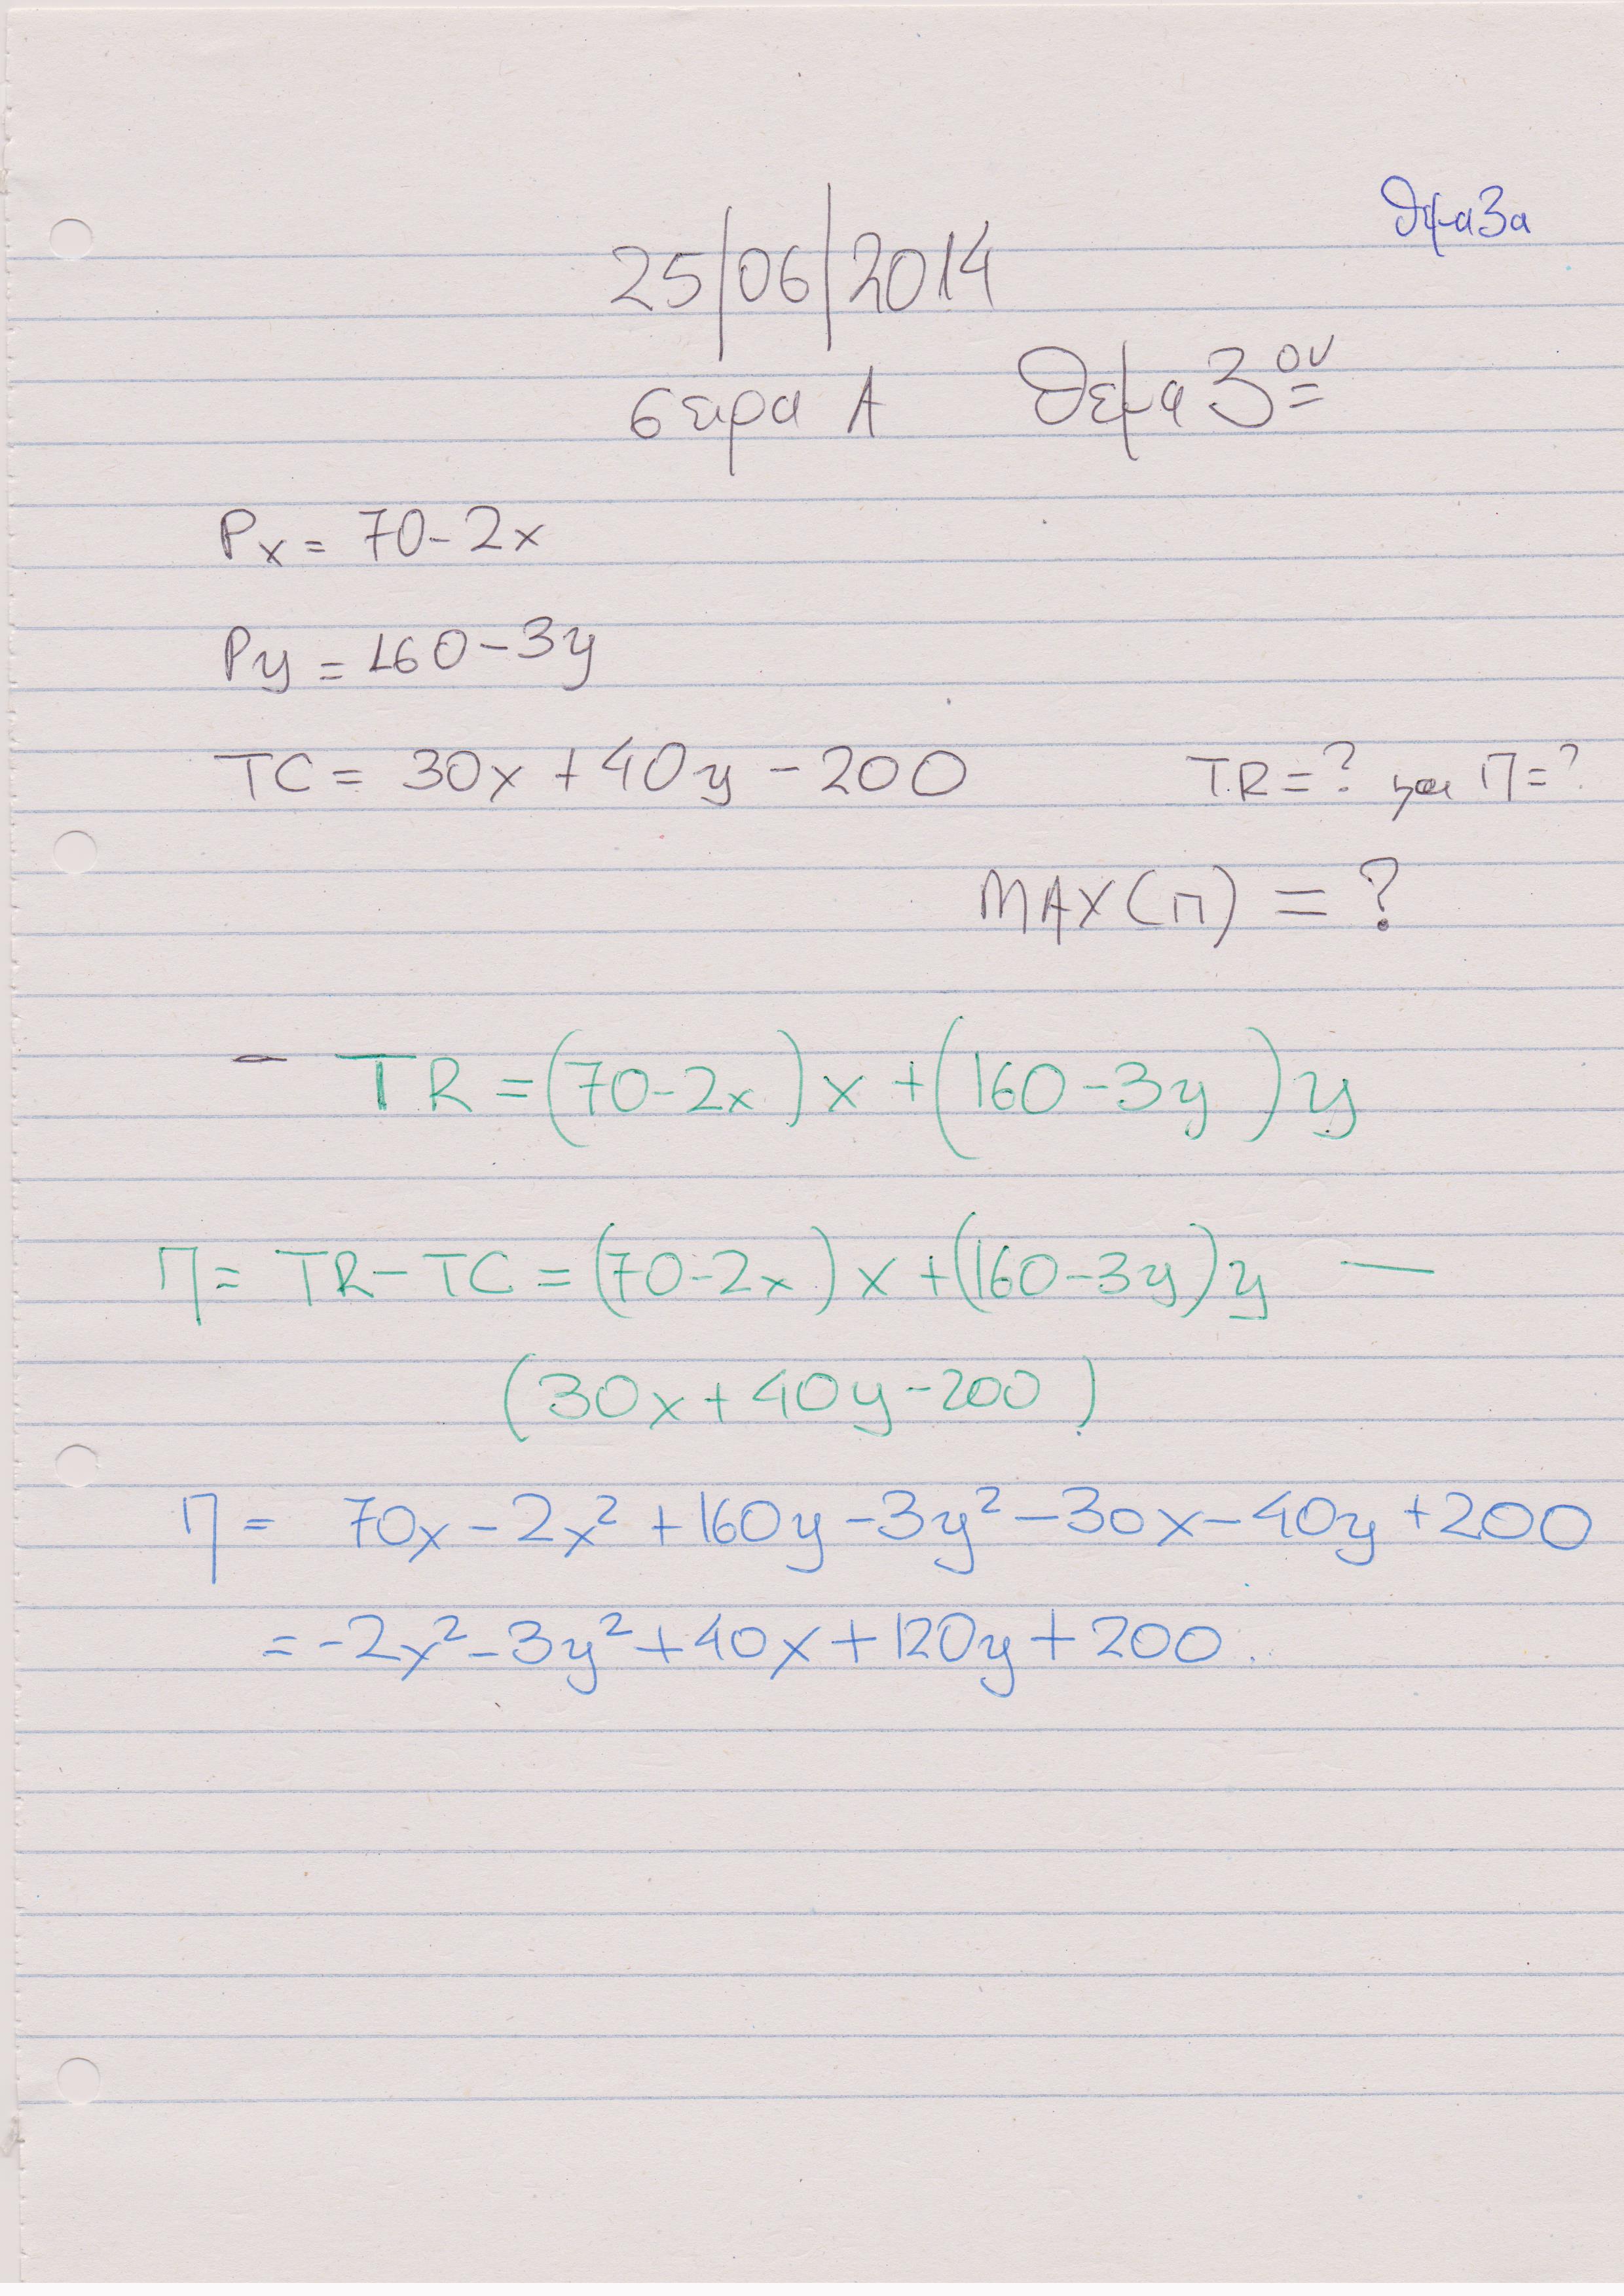 θεμα 3α
25/06/2014
σειρα Α θεμα 3ον
Px = 70-2x
Py = 160-3y
TC = 30x + 40y - 200 TR = ? και Π = ?
MAX(Π) = ?
- TR = (70-2x)x + (160-3y)y
Π = TR - TC = (70-2x)x + (160-3y)y —
(30x + 40y - 200)
Π = 70x - 2x² + 160y - 3y² - 30x - 40y + 200
= -2x² - 3y² + 40x + 120y + 200.